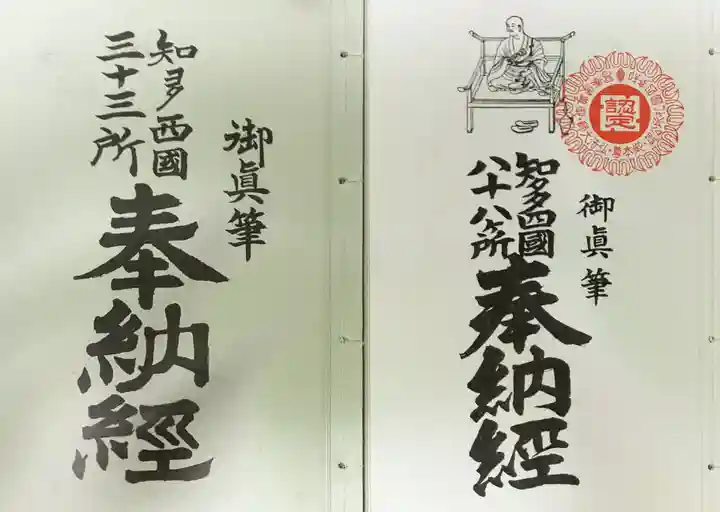 御眞筆
知多西國
三十三所
奉納經
御眞筆
知多四國
八十八ヶ所
奉納經
認定